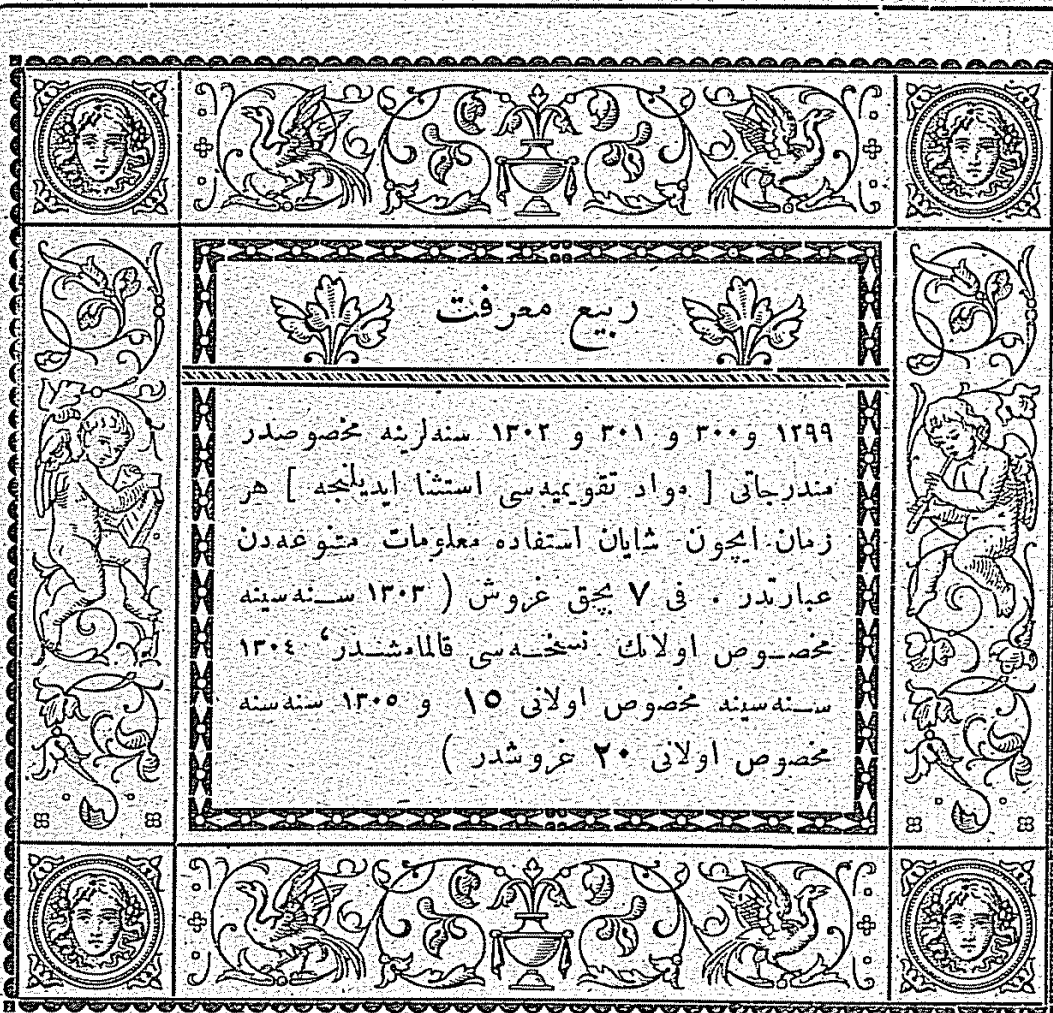 ربيع معرفت
١٢٩٩ و ٣٠٠ و ٣٠١ و ١٣٠٢ سنه‌لرينه مخصوصدر
مندرجاتی [ مواد تقويميه‌سی استثنا ايديلنجه ] هر
زمان ايچون شايان استفاده معلومات متنوعه‌دن
عبارتدر . فی ٧ بچق غروش ( ١٣٠٣ سنه‌سينه
مخصوص اولانك نسخه‌سی قالمامشدر، ١٣٠٤
سنه‌سينه مخصوص اولانی ١٥ و ١٣٠٥ سنه‌سنه
مخصوص اولانی ٢٠ غروشدر )